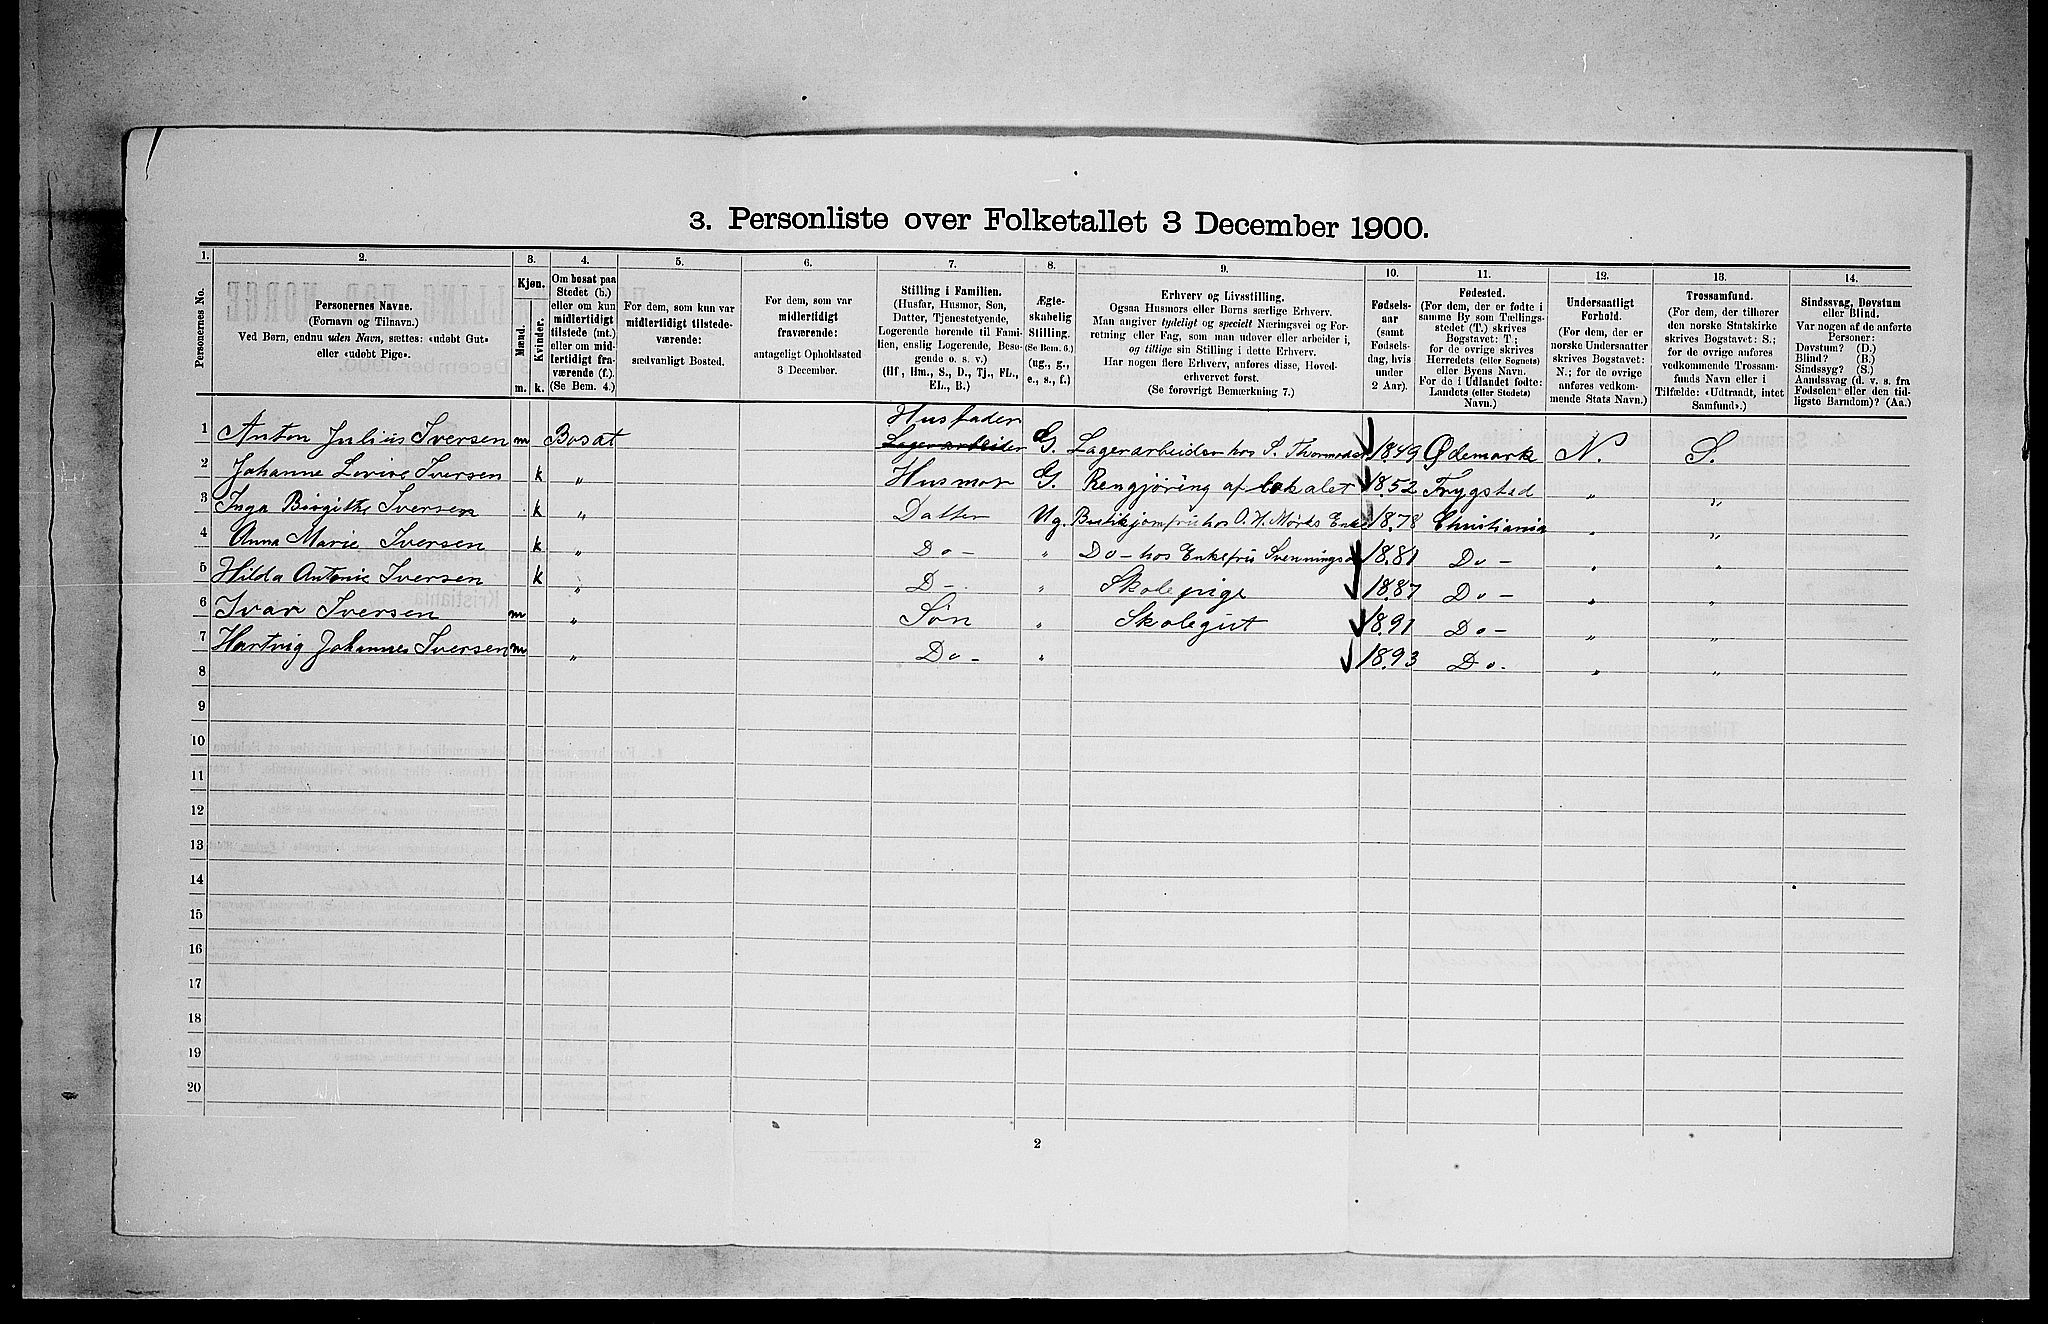 3. Personliste over Folketallet 3 December 1900.
1. 2. 3. 4. 5. 6. 7. 8. 9. 10. 11. 12. 13. 14.
Personernes No.
Personernes Navne.
(Fornavn og Tilnavn.)
Ved Børn, endnu uden Navn, sættes: «udøbt Gut»
eller «udøbt Pige».
Kjøn.
Mænd.
Kvinder.
m. k.
Om bosat paa
Stedet (b.)
eller om kun
midlertidigt
tilstede (mt.)
eller om mid-
lertidigt fra-
værende (f.).
(Se Bem. 4.)
For dem, som kun var
midlertidigt tilstede-
værende:
sædvanligt Bosted.
For dem, som var
midlertidigt
fraværende:
antageligt Opholdssted
3 December.
Stilling i Familien.
(Husfar, Husmor, Søn,
Datter, Tjenestetyende,
Logerende hørende til Fami-
lien, enslig Logerende, Besø-
gende o. s. v.)
(Hf, Hm., S., D., Tj., FL.,
EL., B.)
Ægte-
skabelig
Stilling.
(Se Bem. 6.)
(ug., g.,
e., s., f.)
Erhverv og Livsstilling.
Ogsaa Husmors eller Børns særlige Erhverv.
Man angiver tydeligt og specielt Næringsvei og For-
retning eller Fag, som man udøver eller arbeider i,
og tillige sin Stilling i dette Erhverv.
Har nogen flere Erhverv, anføres disse, Hoved-
erhvervet først.
(Se forøvrigt Bemærkning 7.)
Fødsels-
aar
(samt
Fødsels-
dag, hvis
under
2 Aar).
Fødested.
(For dem, der er fødte i
samme By som Tællings-
stedet (T.) skrives
Bogstavet: T.;
for de øvrige skrives
Herredets (eller Sognets)
eller Byens Navn.
For de i Udlandet fødte:
Landets (eller Stedets)
Navn.)
Undersaatligt
Forhold.
(For dem, der er
norske Undersaatter
skrives Bogstavet:
N.; for de øvrige
anføres vedkom-
mende Stats Navn.)
Trossamfund.
(For dem, der tilhører
den norske Statskirke
skrives Bogstavet: S.;
for de øvrige anføres
vedkommende Trossam-
funds Navn eller i
Tilfælde: «Udtraadt, intet
Samfund».)
Sindssvag, Døvstum
eller Blind.
Var nogen af de anførte
Personer:
Døvstum? (D.)
Blind? (B.)
Sindssyg? (S.)
Aandssvag (d. v. s. fra
Fødselen eller den tid-
ligste Barndom)? (Aa.)
Husfader
1 Anton Julius Iversen m Bosat Lagerarbeider G. Lagerarbeider hos S. 1849 Ødemark N. S.
2 Johanne Lovise Iversen k " Husmor G. Rengjøring af lokalet 1852 Trygstad " "
3 Inga Birgithe Iversen k " Datter Ug. Butikjomfru hos O. H. Mørks Enke 1878 Christiania " "
4 Anna Marie Iversen k " Do - " Do - hos Enkefru 1881 Do - " "
5 Hilda Antonie Iversen k " D - " Skolepige 1887 Do - " "
6 Ivar Iversen m " Søn " Skolegut 1891 Do - " "
7 Hartvig Johannes Iversen m " Do - " 1893 Do - " "
8
9
10
11
12
13
14
15
16
17
18
19
20
2